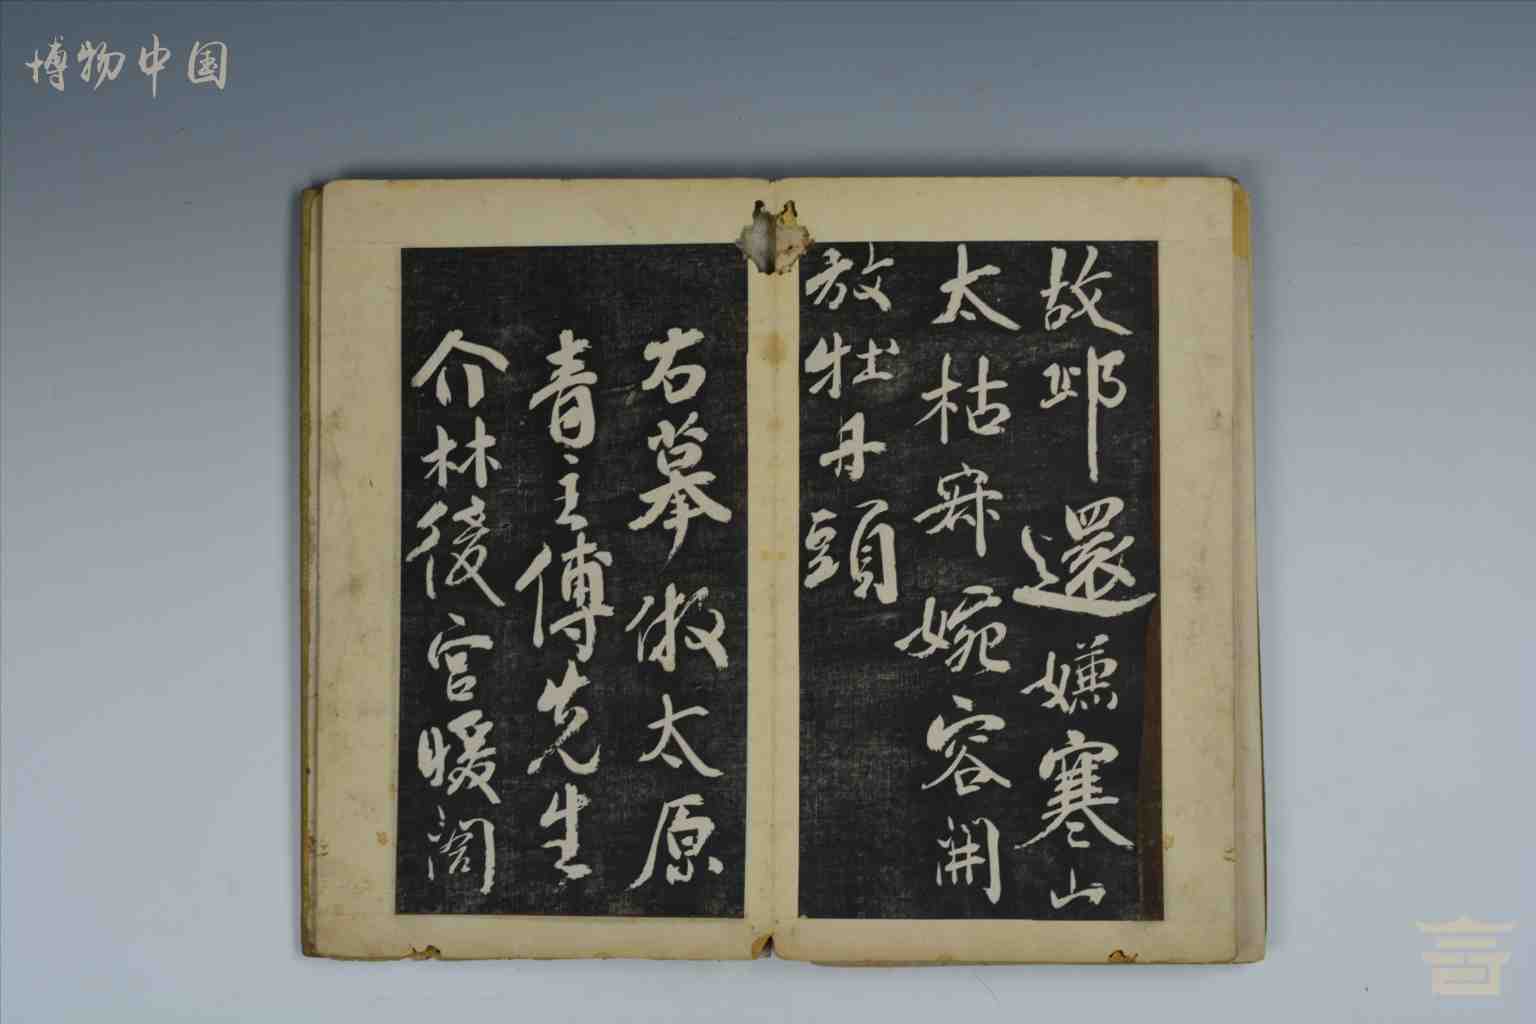 博物中国
故邱還嫌寒山
太枯寂婉容開
放牡丹頭
右摹倣太原
青主傅先生
介林後宮暖閣